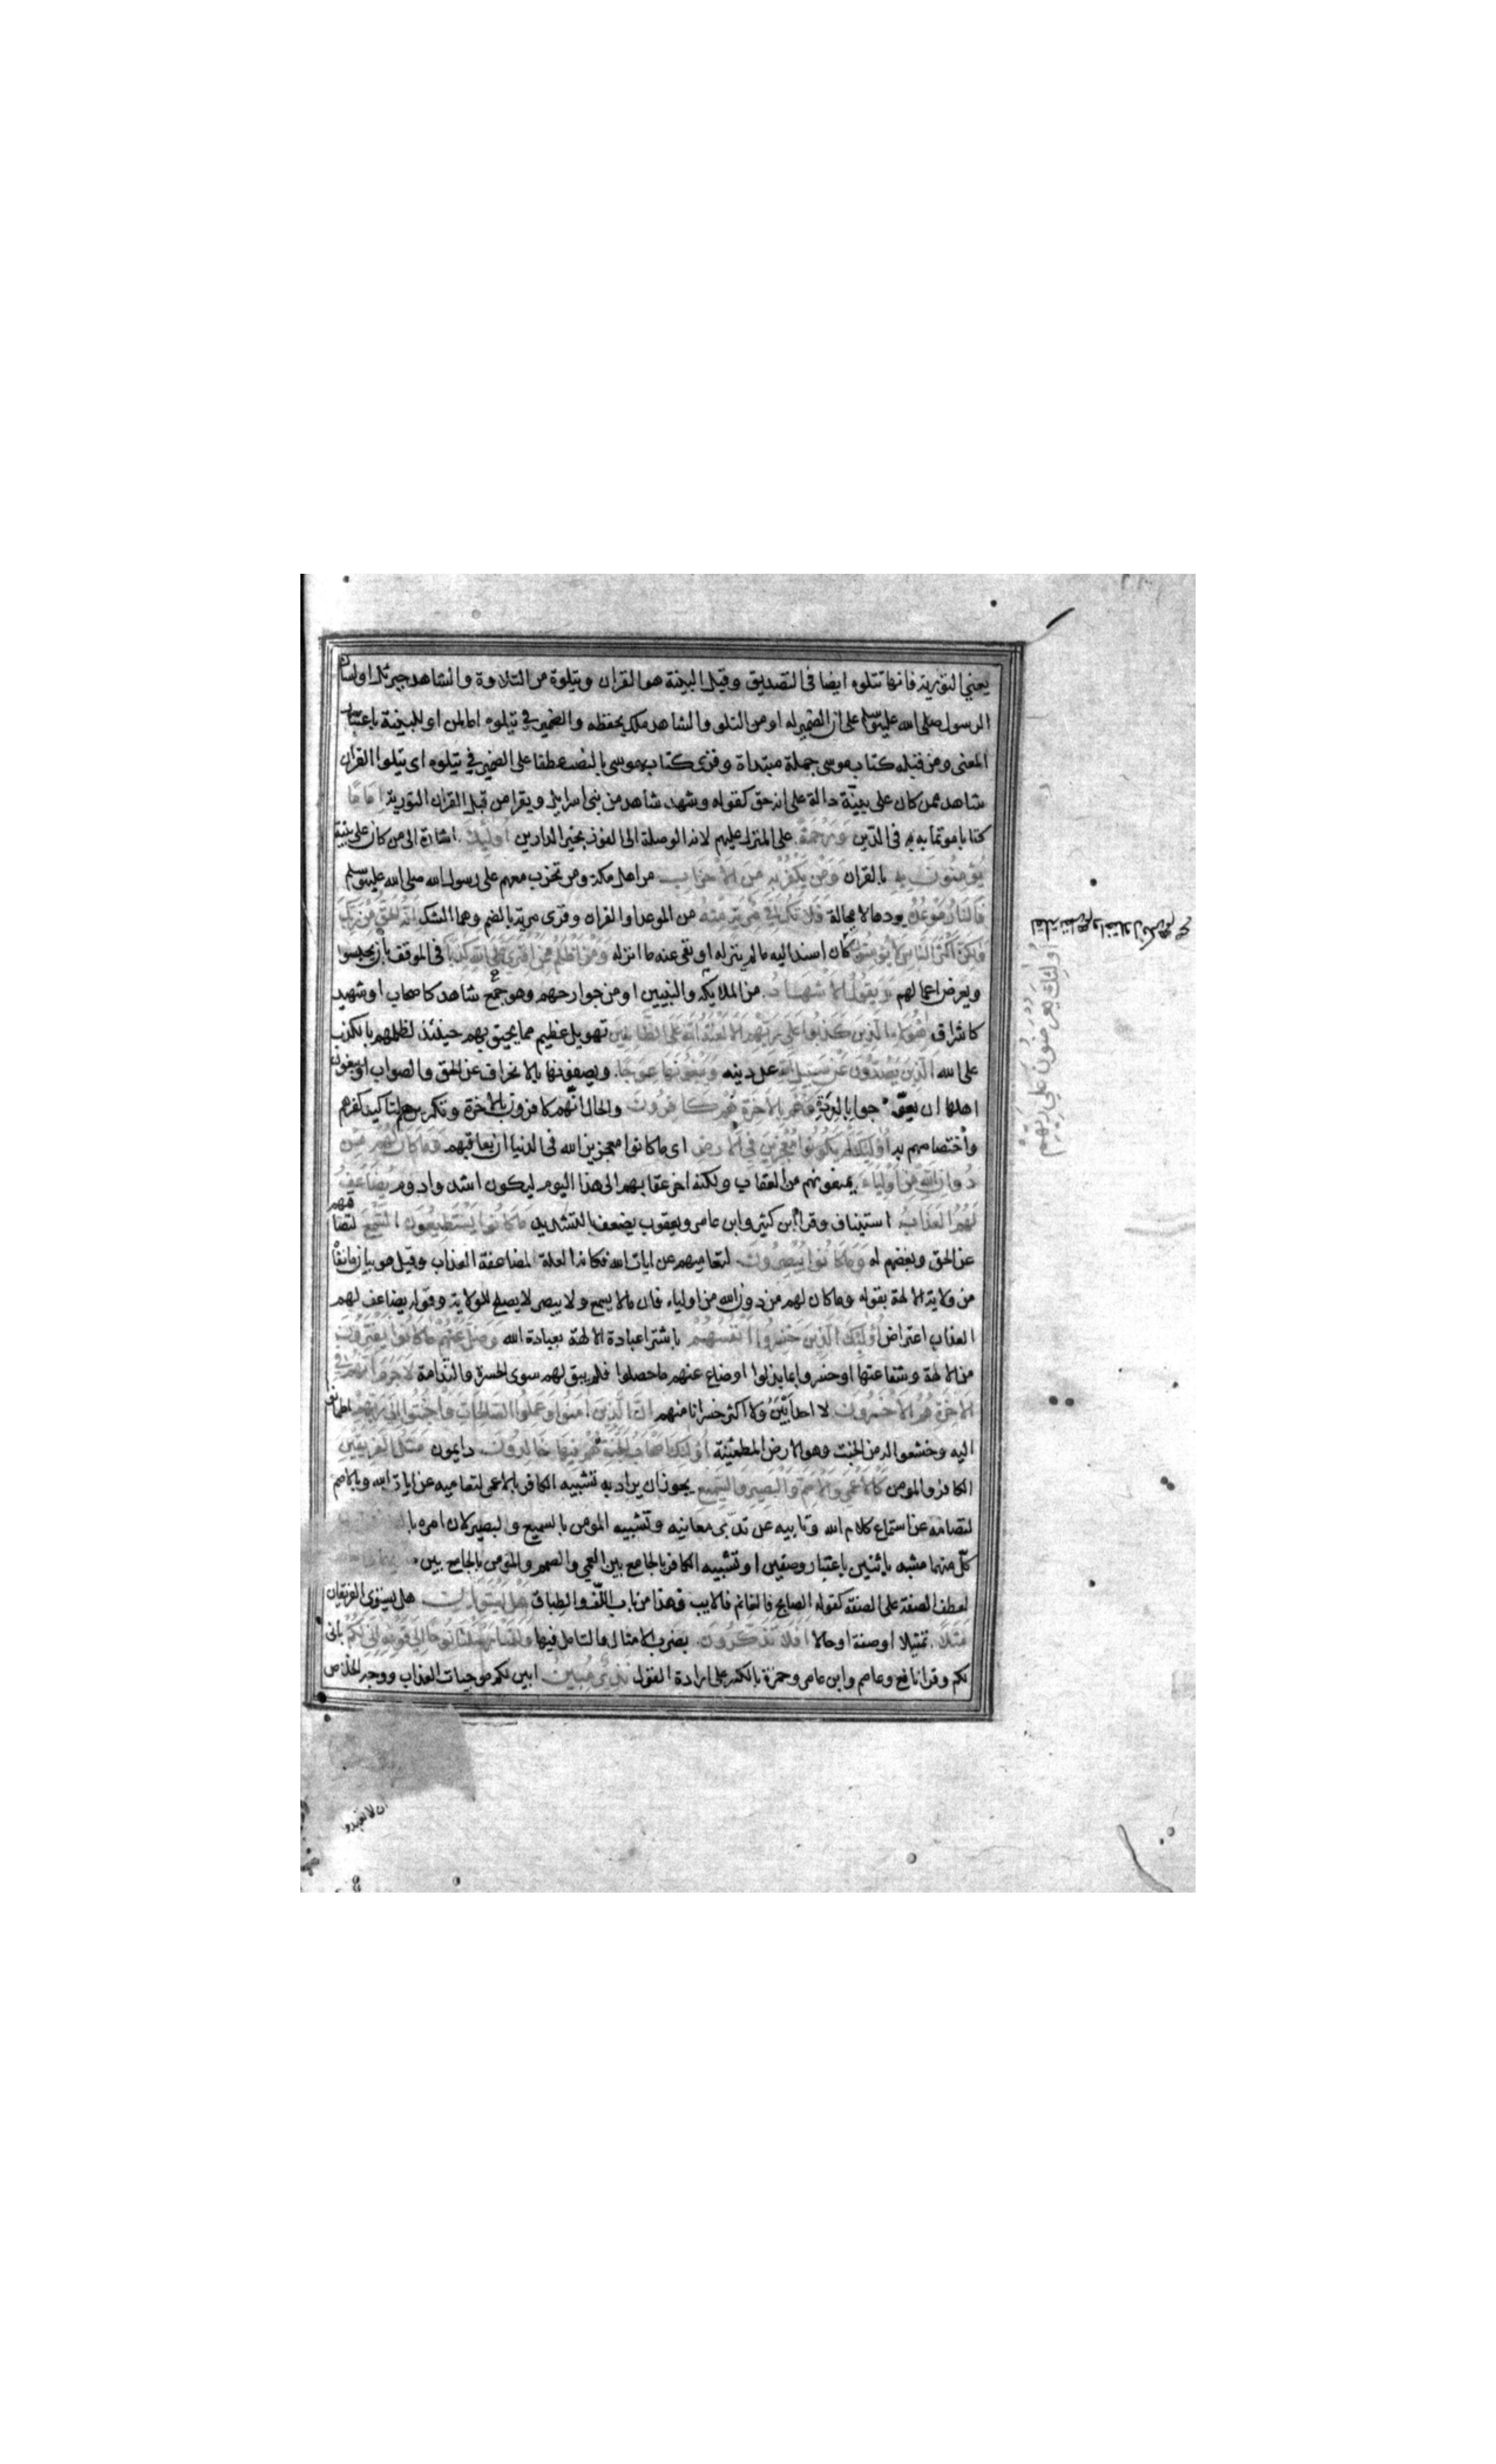 يعني التورية فانها تتلوه ايضا في التصديق وقيل البينة هو القران ويتلوه من التلاوة والشاهد جبرئل او لسان
الرسول صلى الله عليه وسلم على ان الضمير له او من التلو والشاهد ملك يحفظه والضمير في يتلوه اما لمن او للبينة باعتبار
المعنى ومن قبله كتاب موسى جملة مبتداة وقرئ كتاب موسى بالنصب عطفا على الضمير في يتلوه اى يتلوا القران
شاهد ممن كان على بينة دالة على انه حق كقوله وشهد شاهد من بنى اسرايل ويقرا من قبل القران التورية اماما
كتابا موتما به في الدين ورحمة على المنزل عليهم لانه الوصلة الى الفوز بخير الدارين اوليك اشارة الى من كان على بينة
يؤمنون به بالقران ومن يكفر به من الاحزاب من اهل مكة ومن تحزب معهم على رسول الله صلى الله عليه وسلم
فالنار موعده يردها لا محالة فلا تك في مرية منه من الموعد او القران وقرئ مرية بالضم وهما الشك انه الحق من ربك
ولكن اكثر الناس لا يؤمنون كان اسند اليه ما لم ينزله او نفى عنه ما انزله ومن اظلم ممن افترى على الله كذبا في الموقف بان يحبسوا
ويعرض اعمالهم ويقول الاشهاد من الملايكة والنبيين او من جوارحهم وهو جمع شاهد كاصحاب او شهيد
كاشراق هؤلاء الذين كذبوا على ربهم الا لعنة الله على الظالمين تهويل عظيم مما يحيق بهم حينئذ لظلمهم بالكذب
على الله الذين يصدون عن سبيل الله عن دينه ويبغونها عوجا ويصفونها بالانحراف عن الحق والصواب او يبغون
اهلها ان يعوجوا بالردة وهم بالاخرة هم كافرون والحال انهم كافرون بالاخرة وتكريرهم لتاكيد كفرهم
واختصاصهم به اوليك لم يكونوا معجزين في الارض اى ما كانوا معجزين الله في الدنيا ان يعاقبهم وما كان لهم من
دون الله من اولياء يمنعونهم من العقاب ولكنه اخر عقابهم الى هذا اليوم ليكون اشد وادوم يضاعف
لهم العذاب استيناف وقرا ابن كثير وابن عامر ويعقوب يضعف بالتشديد ما كانوا يستطيعون السمع لتصامهم
عن الحق وبغضهم له وما كانوا يبصرون لتعاميهم عن ايات الله فكانه العلة لمضاعفة العذاب وقيل هو بيان ما نفاه
من ولاية الالهة بقوله وما كان لهم من دون الله من اولياء فان ما لا يسمع ولا يبصر لا يصلح للولاية وقوله يضاعف لهم
العذاب اعتراض اوليك الذين خسروا انفسهم باشترا عبادة الالهة بعبادة الله وضل عنهم ما كانوا يفترون
من الالهة وشفاعتها او خسروا بما بذلوا اوضاع عنهم ما حصلوا فلم يبق لهم سوى الحسرة والندامة لا جرم انهم في
الاخرة هم الاخسرون لا احد ابين ولا اكثر خسرانا منهم ان الذين امنوا وعملوا الصالحات واخبتوا الى ربهم اطمانوا
اليه وخشعوا له من الخبت وهو الارض المطمئنة اوليك اصحاب الجنة هم فيها خالدون دايمون مثل الفريقين
الكافر والمومن كالاعمى والاصم والبصير والسميع يجوز ان يراد به تشبيه الكافر بالاعمى لتعاميه عن ايات الله وبالاصم
لتصامه عن استماع كلام الله وتابيه عن تدبر معانيه وتشبيه المومن بالسميع والبصير لان امره
كل منهما مشبه باثنين باعتبار وصفين او تشبيه الكافر بالجامع بين العمى والصمم والمومن بالجامع بين
لعطف الصفة على الصفة كقوله الصابح فالغانم فالايب وهذا من باب اللف والطباق هل يستويان هل يستوى الفريقان
مثلا تمثيلا او صفة او حالا افلا تذكرون بضرب الامثال والتامل فيها ولقد ارسلنا نوحا الى قومه انى لكم بانى
لكم وقرا نافع وعاصم وابن عامر وحمزة بالكسر على ارادة القول نذير مبين ابين لكم موجبات العذاب ووجه الخلاص
اوليك يعرضون على ربهم
ان لا تعبدوا